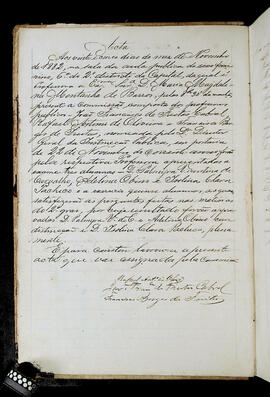 Acta
Aos vinte e cinco dias do mes de Novembro
de 1882, na sala da escola publica do sexo femi-
nino, 6ª do 2º districto da Capital, da qual é
Professora a Exma Snra D. Maria Magdale-
na de Barros, pelas 9 da manhã,
presente a Commissão, composta dos professores
publicos João Francisco de Freitas Cabral,
Raphael Antonio de Oliveira e Francisco Borges
de Freitas, nomeada pelo Director
Geral da Instrucção Publica, em portaria
de 22 de Novembro do corrente anno, foram
pela respectiva Professora apresentadas a
exame tres alumnas D. Palmyra Carolina de
Carvalho, Adelina Olar e Isolina Clara
Pacheco e as quaes
satisfizeram as perguntas feitas nas materias
do 2º grao, por cujo resultado foram appro-
vadas D. Palmyra e Adelina com
distincção e D. Isolina Clara Pacheco, plena-
mente.
E para constar lavrou-se a presente
acta que vai assignada pela Commissão
João Franco de Freitas Cabral
Francisco Borges de Freitas